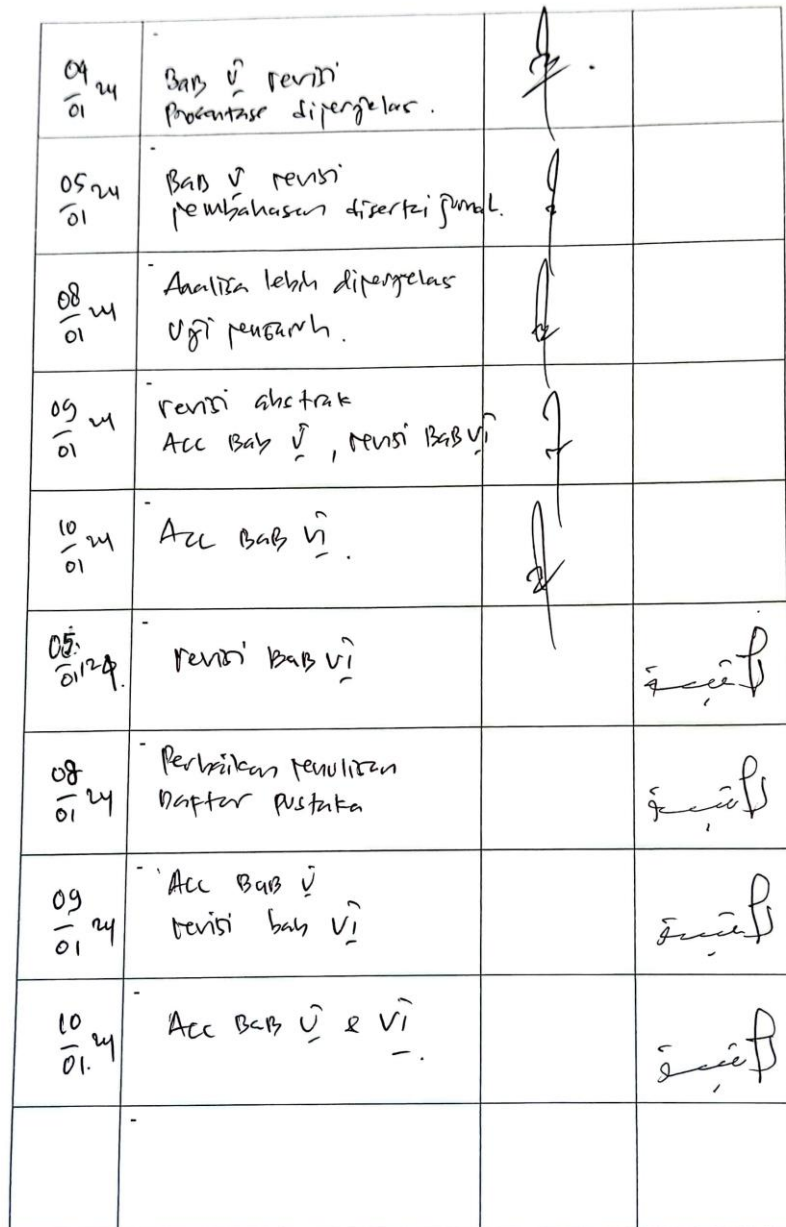 04/01 24
BAB V revisi
Prosentase diperjelas.
05/01 24
BAB V revisi
pembahasan disertai jurnal.
08/01 24
Analisa lebih diperjelas
Uji pengaruh.
09/01 24
revisi abstrak
Acc Bab V, revisi BAB VI
10/01 24
Acc BAB VI.
05/01/24.
revisi BAB VI
08/01 24
Perbaikan penulisan
Daftar pustaka
09/01 24
Acc BAB V
revisi bab VI
10/01. 24
Acc BAB V & VI.